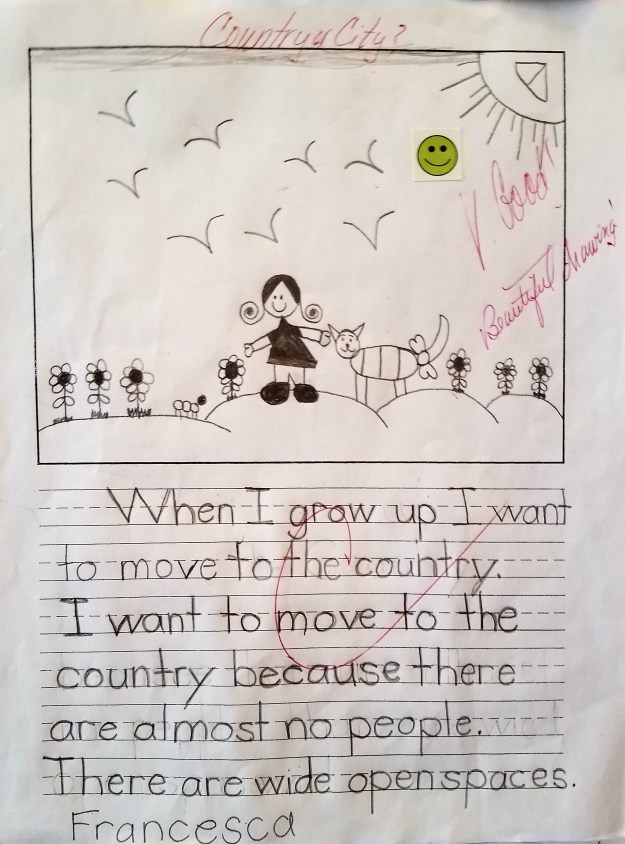 Country or City?
V. Good!
Beautiful drawing!
When I grow up I want
to move to the country.
I want to move to the
country because there
are almost no people.
There are wide open spaces.
Francesca